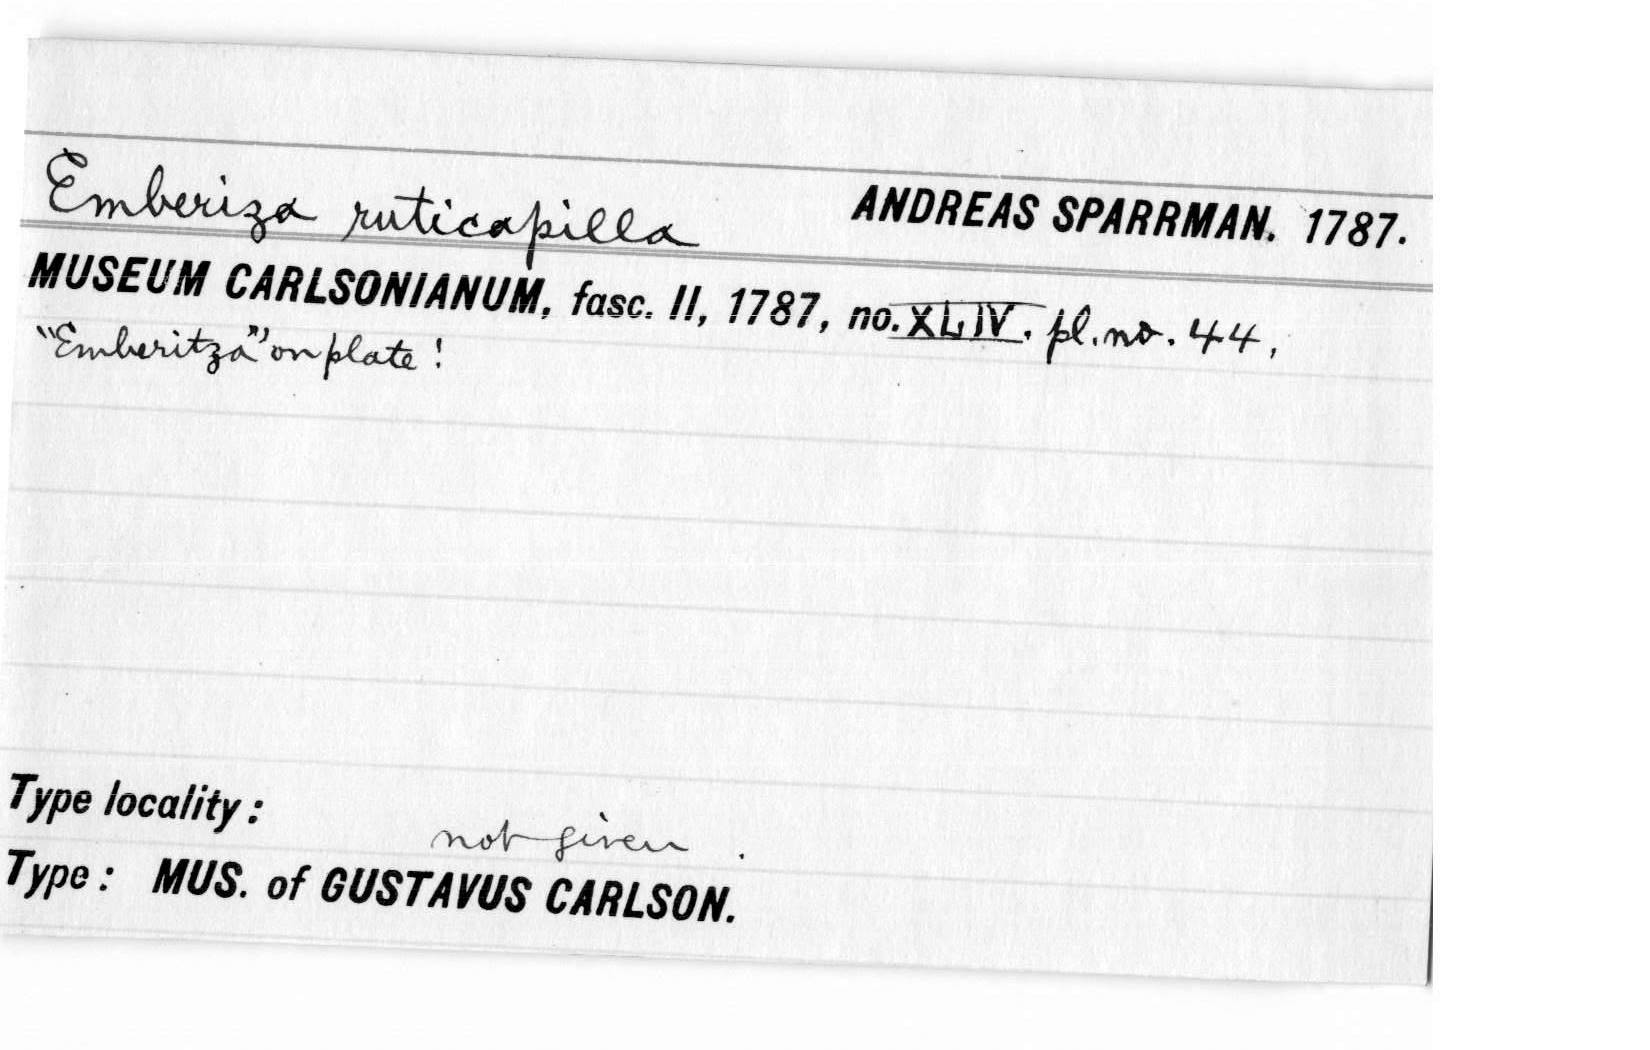 Emberiza ruticapilla ANDREAS SPARRMAN. 1787.
MUSEUM CARLSONIANUM, fasc. II, 1787, no. XLIV. pl. no. 44,
"Emberitza" on plate!
Type locality:
not given.
Type: MUS. of GUSTAVUS CARLSON.